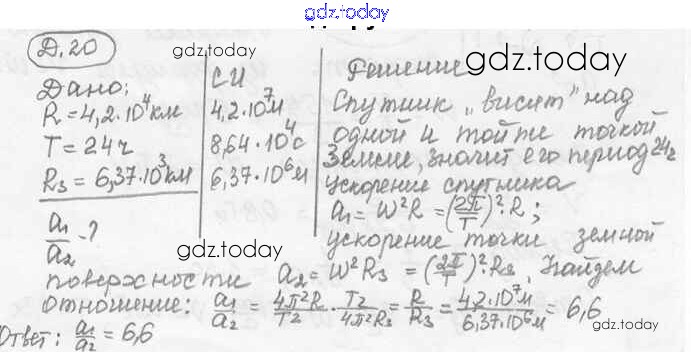 gdz.today
Д.20
Дано:
R = 4,2·10⁴ км
T = 24 ч
R₃ = 6,37·10³ км
a₁/a₂ - ?
gdz.today
СИ
4,2·10⁷ м
8,64·10⁴ с
6,37·10⁶ м
Решение
gdz.today
Спутник „висит" над
одной и той же точкой
Земли, значит его период 24 ч
ускорение спутника
a₁ = ω²R = (2π/T)²·R;
gdz.today
ускорение точки земной
поверхности a₂ = ω²R₃ = (2π/T)²·R₃. Найдем
отношение: a₁/a₂ = 4π²R/T² · T²/4π²R₃ = R/R₃ = 4,2·10⁷ м/6,37·10⁶ м = 6,6
Ответ: a₁/a₂ = 6,6
gdz.today
gdz.today